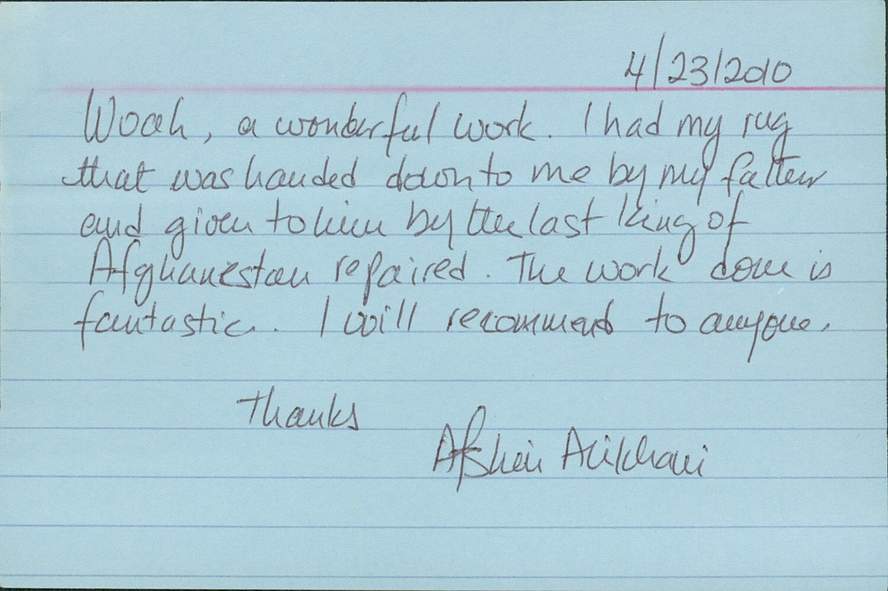 4/23/2010
Woah, a wonderful work. I had my rug
that was handed down to me by my father
and given to him by the last King of
Afghanestan repaired. The work done is
fantastic. I will recommend to anyone.
Thanks
Afshin Alikhani